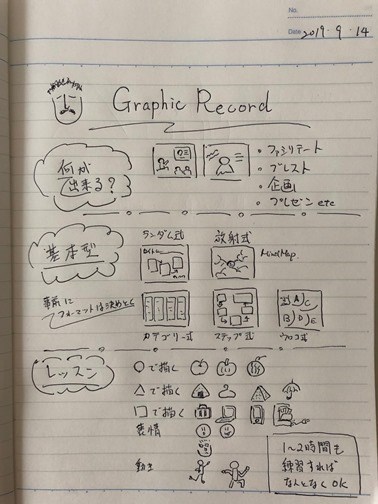 No.
Date 2019・9・14
Graphic Record
何が
出来る?
・ファシリテート
・ブレスト
・企画
・プレゼン etc
基本型
ランダム式
放射式
MindMap
事前に
フォーマットは決めとく
カテゴリー式
ステップ式
ウロコ式
レッスン
○で描く
△で描く
□で描く
表情
動き
1〜2時間も
練習すれば
なんとなくOK